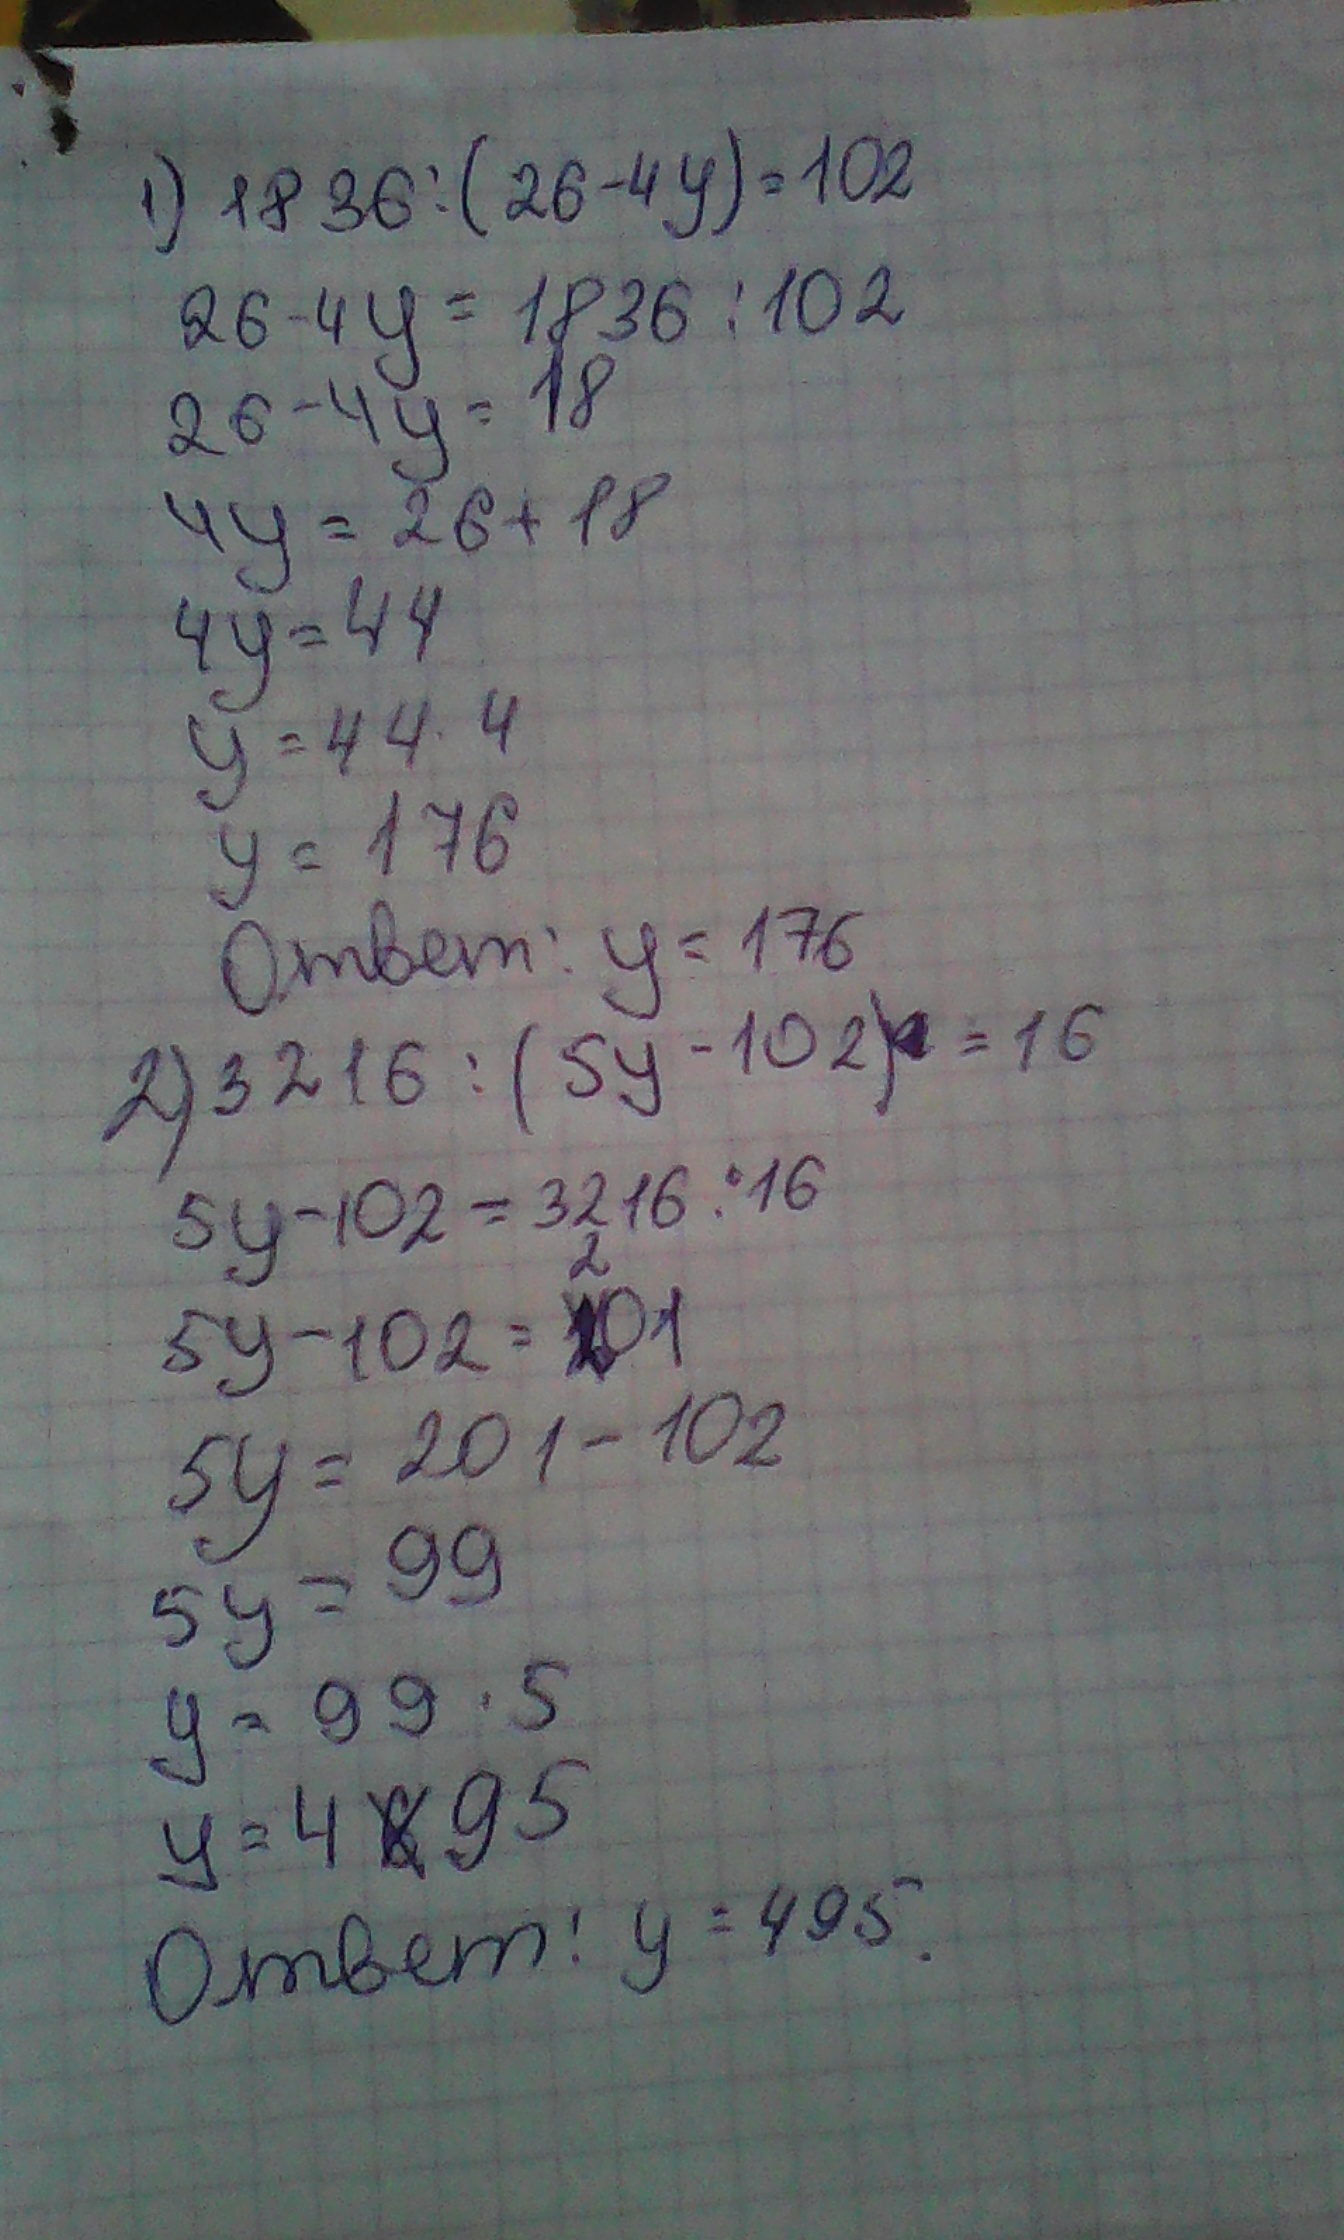 1) 1836:(26-4y)=102
26-4y=1836:102
26-4y=18
4y=26+18
4y=44
y=44·4
y=176
Ответ: y=176
2) 3216:(5y-102)=16
5y-102=3216:16
5y-102=201
5y=201-102
5y=99
y=99·5
y=495
Ответ: y=495.